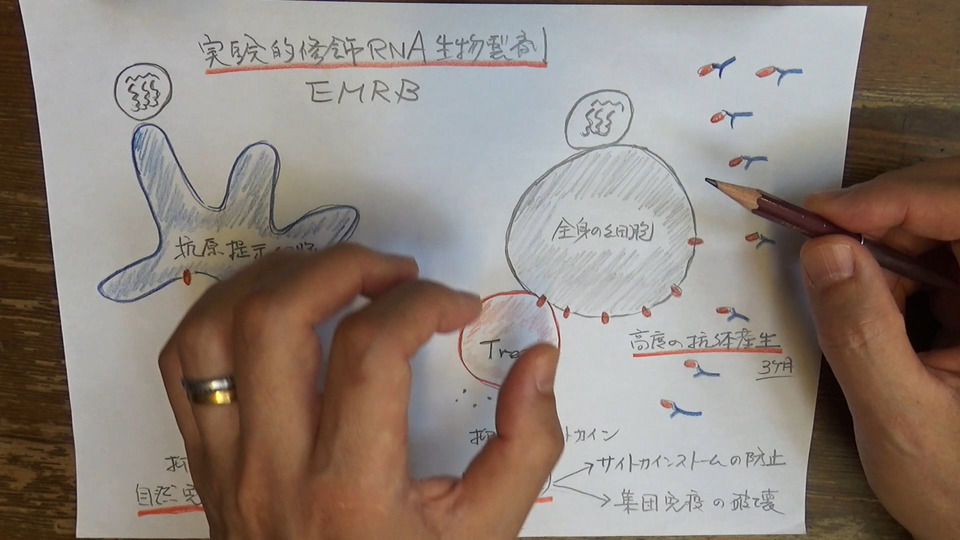 実験的修飾RNA生物製剤
EMRB
抗原提示細胞
全身の細胞
Tre
高度の抗体産生
3ヶ月
抑
トカイン
サイトカインストームの防止
自然免
集団免疫の破壊